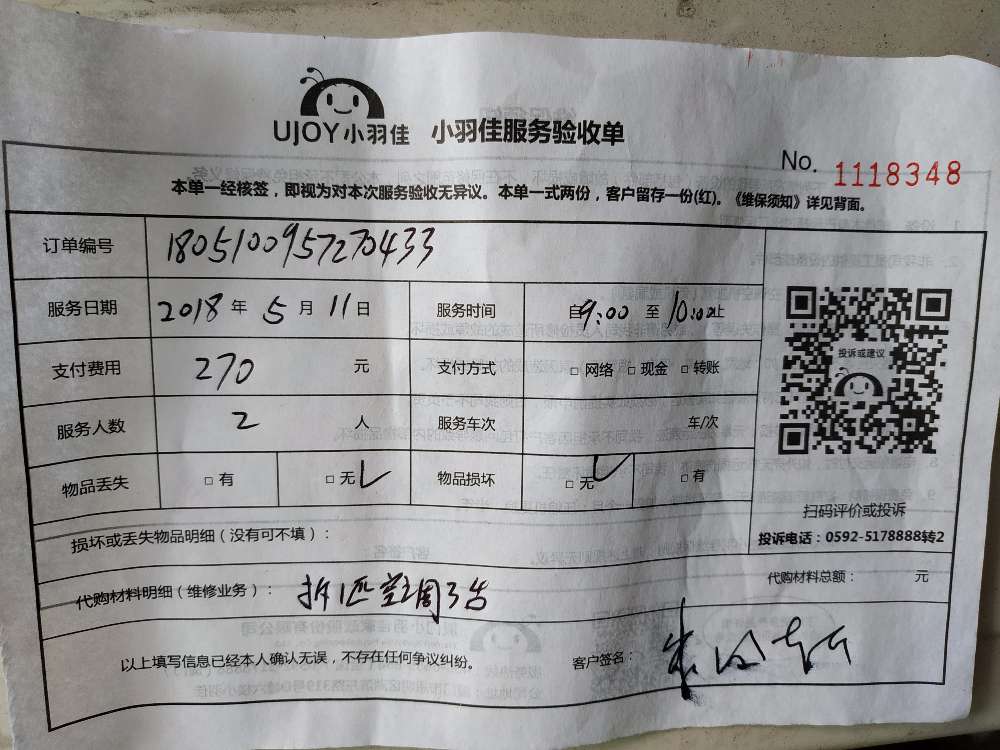 UJOY小羽佳 小羽佳服务验收单
No. 1118348
本单一经核签，即视为对本次服务验收无异议。本单一式两份，客户留存一份(红)。《维保须知》详见背面。
订单编号 1805100957270433
服务日期 2018 年 5 月 11 日 服务时间 自9:00 至 10:00止
支付费用 270 元 支付方式 □ 网络 □ 现金 □ 转账
投诉或建议
服务人数 2 人 服务车次 车/次
物品丢失 □ 有 □ 无 物品损坏 □ 无 □ 有
扫码评价或投诉
投诉电话：0592-5178888转2
损坏或丢失物品明细（没有可不填）：
代购材料明细（维修业务）： 拆1匹空调3台
代购材料总额： 元
以上填写信息已经本人确认无误，不存在任何争议纠纷。 客户签名：